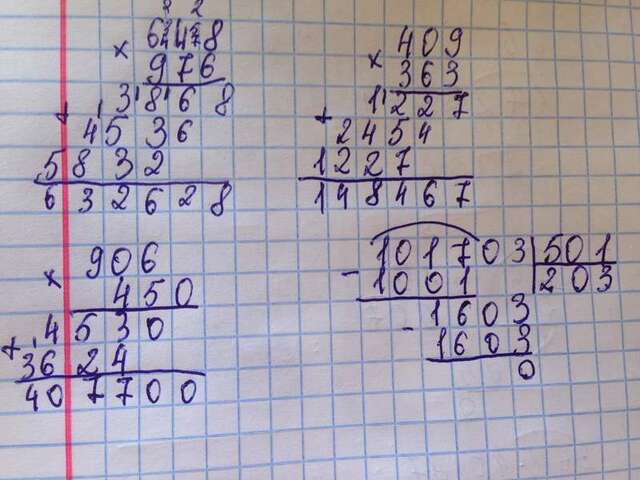 648
× 976
3868
+ 4536
5832
632628
409
× 363
1227
+ 2454
1227
148467
906
× 450
4530
+ 3624
407700
101703 501
- 1001 203
1603
- 1603
0